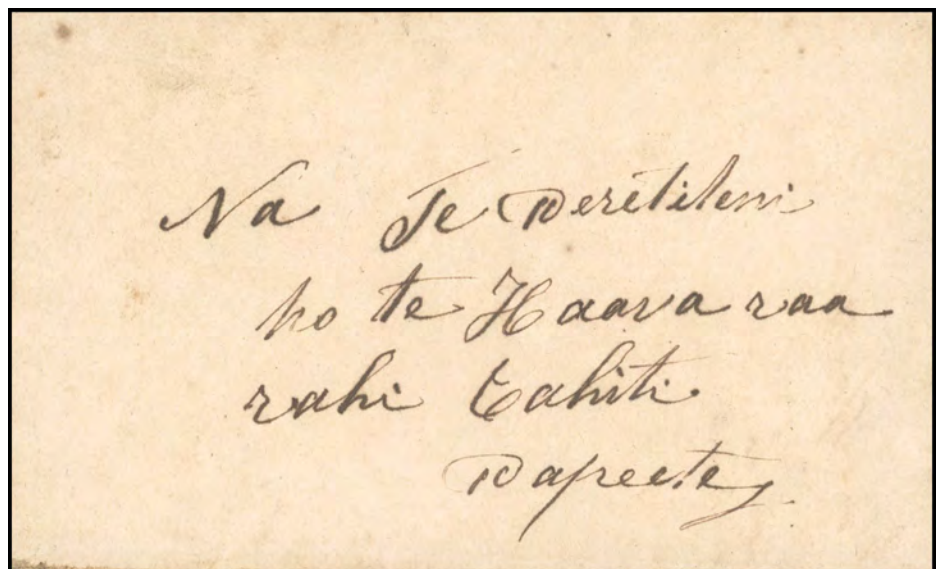 Na Te Peretiteni
no te Haava raa
rahi Tahiti
Papeete